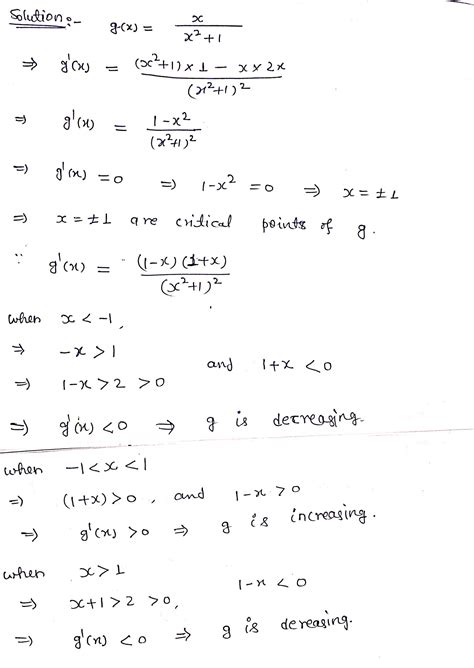 Solution:- g(x) = x/(x²+1)
⇒ g'(x) = ((x²+1) × 1 - x × 2x)/(x²+1)²
⇒ g'(x) = (1-x²)/(x²+1)²
⇒ g'(x) = 0 ⇒ 1-x² = 0 ⇒ x = ±1
⇒ x = ±1 are critical points of g.
∵ g'(x) = (1-x)(1+x)/(x²+1)²
when x < -1,
⇒ -x > 1
⇒ 1-x > 2 > 0 and 1+x < 0
⇒ g'(x) < 0 ⇒ g is decreasing.
when -1 < x < 1
⇒ (1+x) > 0, and 1-x > 0
⇒ g'(x) > 0 ⇒ g is increasing.
when x > 1
⇒ x+1 > 2 > 0, 1-x < 0
⇒ g'(x) < 0 ⇒ g is dereasing.